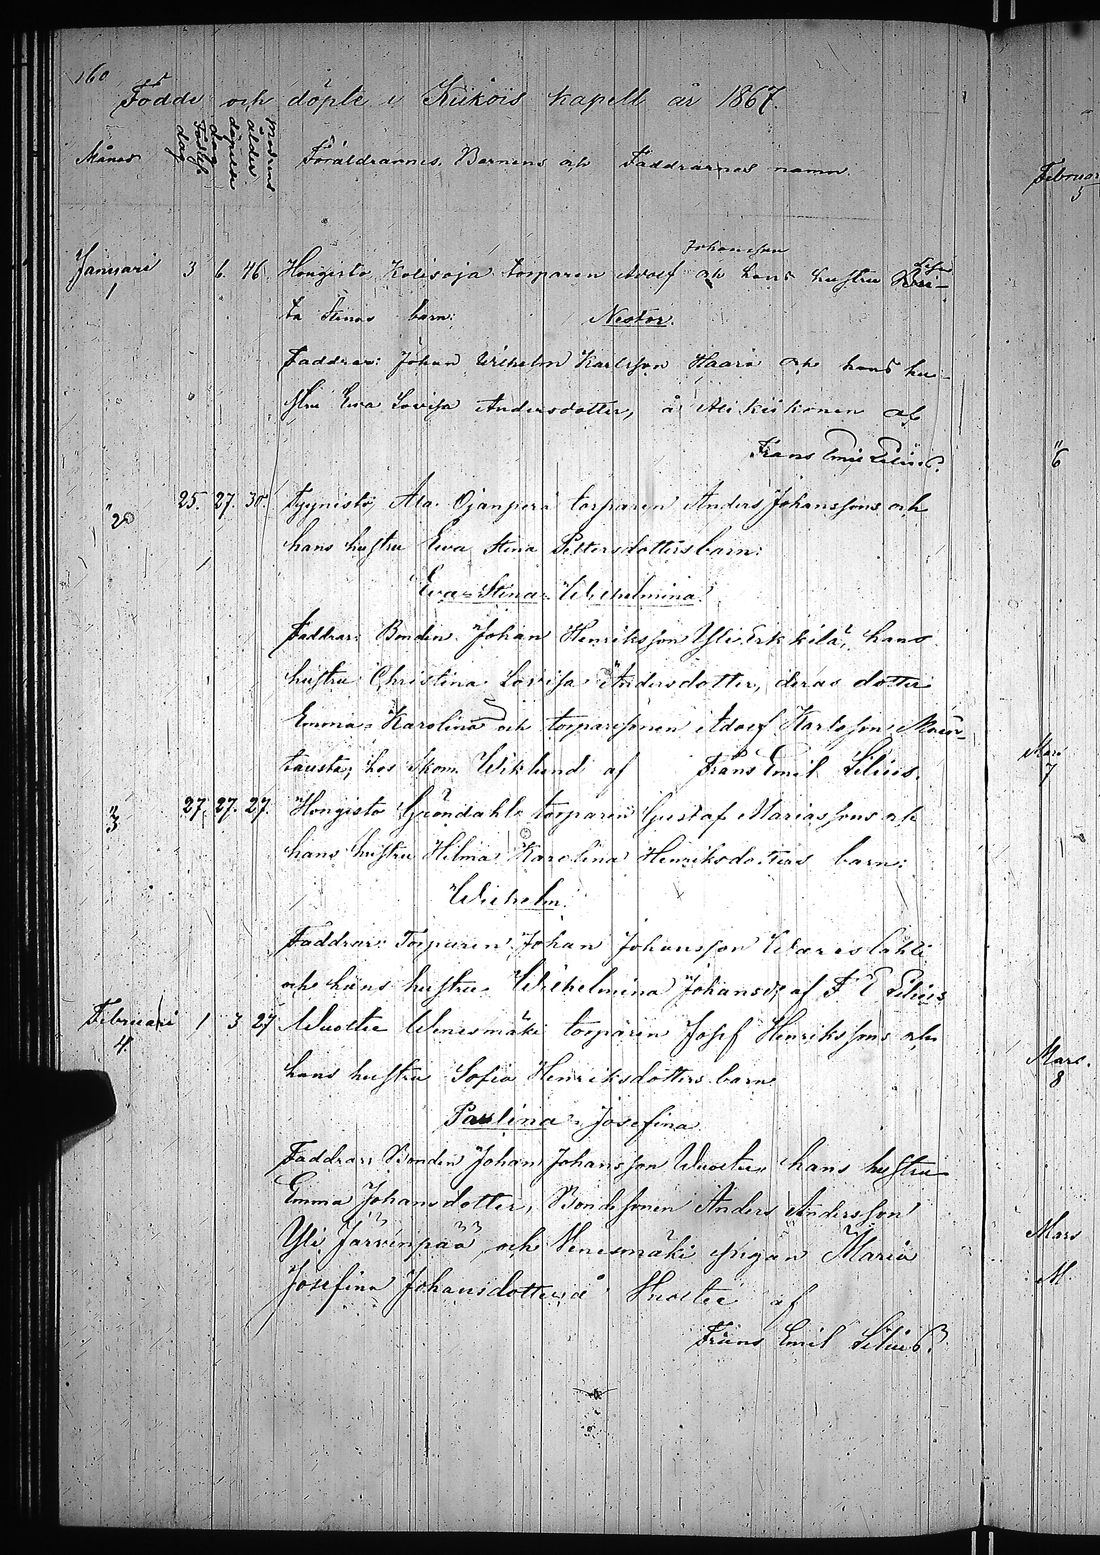 160
Födde och döpte i Kiikois kapell år 1867.
Månad
Födelse dag
döpelse dag
Modrens ålder
Föräldrarnes, Barnens och Faddrarnes namn.
Januari 3 6. 46. Hongisto Kolisoja torparen Adolf Johansson och hans hustru
1
ta Stinas barn: Nestor.
Faddrar: Johan Wilhelm Karlsson Haara och hans hu-
stru Ewa Lovisa Andersdotter, å Ali Kiikonen af
Frans Emil Lilius.
" 25. 27. 30. Tyynistö, Ala Ojanperä torparen Anders Johanssons och
2
hans hustru Ewa Stina Pettersdotters barn:
Eva Stina Wilhelmina.
Faddrar: Bonden Johan Henriksson Yli Erkkilä, hans
hustru Christina Lovisa Andersdotter, deras dotter
Emma Karolina och torparesonen Adolf Karlsson
hos Wiklund af Frans Emil Lilius.
" 27. 27. 27. Hongisto Gröndahl torparen Gustaf Mariassons och
3
hans hustru Hilma Karolina Henriksdotters barn:
Wilhelm.
Faddrar: Torparen Johan Johansson
och hans hustru Wilhelmina Johansd. af F E Lilius
Februari 1 3 27 Wuoltee Wenesmäki torparen Josef Henrikssons och
4.
hans hustru Sofia Henriksdotters barn
Paulina Josefina
Faddrar: Bonden Johan Johansson Wuoltee, hans hustru
Emma Johansdotter, Bondesonen Anders Andersson
Yli Järvenpää, och Venesmäki pigan Maria
Josefina Johansdotter å Wuoltee af
Frans Emil Lilius.
Februari
5
"
6
Mars
7
Mars.
8
Mars
M.